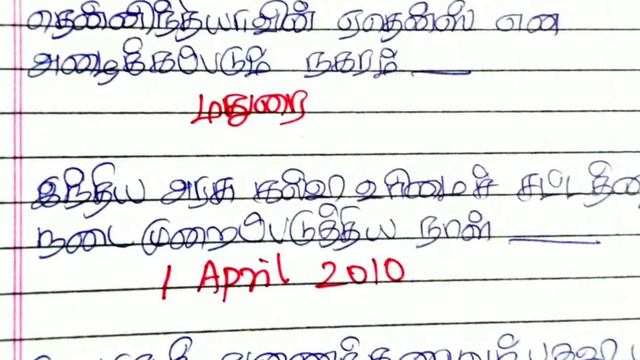 தென்னிந்தியாவின் ஏதென்ஸ் என
அழைக்கப்படும் நகரம் ___
மதுரை
இந்திய அரசு கல்வி உரிமைச் சட்டத்தினை
நடைமுறைப்படுத்திய நாள் ___
1 April 2010